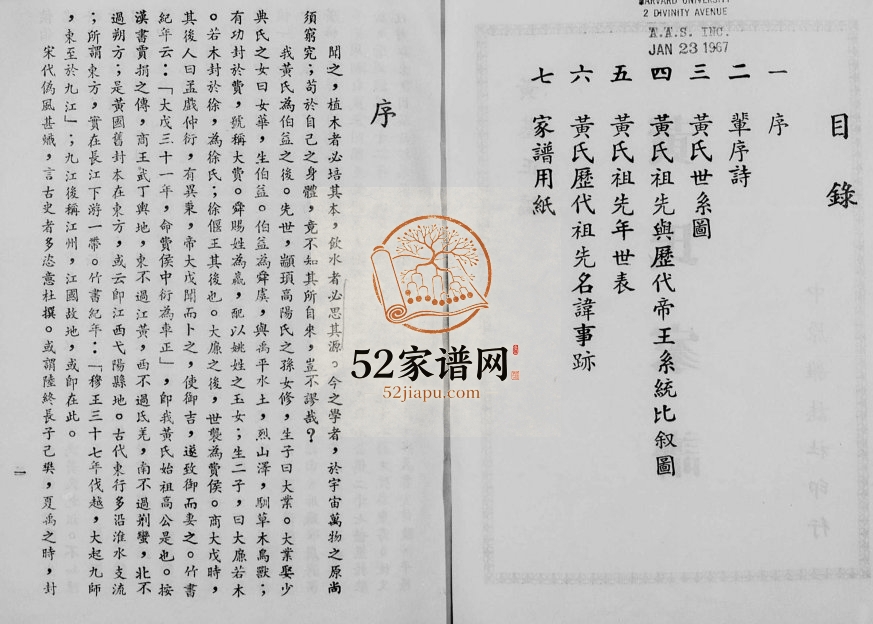 HARVARD UNIVERSITY
2 DIVINITY AVENUE
A.A.S. INC.
JAN 23 1967
目錄
一 序
二 輩序詩
三 黃氏世系圖
四 黃氏祖先與歷代帝王系統比叙圖
五 黃氏祖先年世表
六 黃氏歷代祖先名諱事跡
七 家譜用紙
序
聞之，植木者必培其本，飲水者必思其源。今之學者，於宇宙萬物之原尚
須窮究；苟於自己之身體，竟不知其所自來，豈不謬哉？
我黃氏為伯益之後。先世，顓頊高陽氏之孫女修，生子曰大業。大業娶少
典氏之女曰女華，生伯益。伯益為舜虞，與禹平水土，烈山澤，馴草木鳥獸；
有功封於費，號稱大費。舜賜姓為嬴，配以姚姓之玉女；生二子，曰大廉若木
。若木封於徐，為徐氏；徐偃王其後也。大廉之後，世襲為費侯。商大戊時，
其後人曰孟戲仲衍，有異秉，帝大戊聞而卜之，使御吉，遂致御而妻之。竹書
紀年云：「大戊三十一年，命費侯中衍為車正」，即我黃氏始祖高公是也。按
漢書賈捐之傳，商王武丁輿地，東不過江黃，西不過氐羌，南不過荆蠻，北不
過朔方；是黃國舊封本在東方，或云即江西弋陽縣地。古代東行多沿淮水支流
；所謂東方，實在長江下游一帶。竹書紀年：「穆王三十七年伐越，大起九師
，東至於九江」；九江後稱江州，江國故地，或即在此。
宋代偽風甚熾，言古史者多恣意杜撰。或謂陸終長子己樊，夏禹之時，封
一
中 印行
52家谱网
52jiapu.com